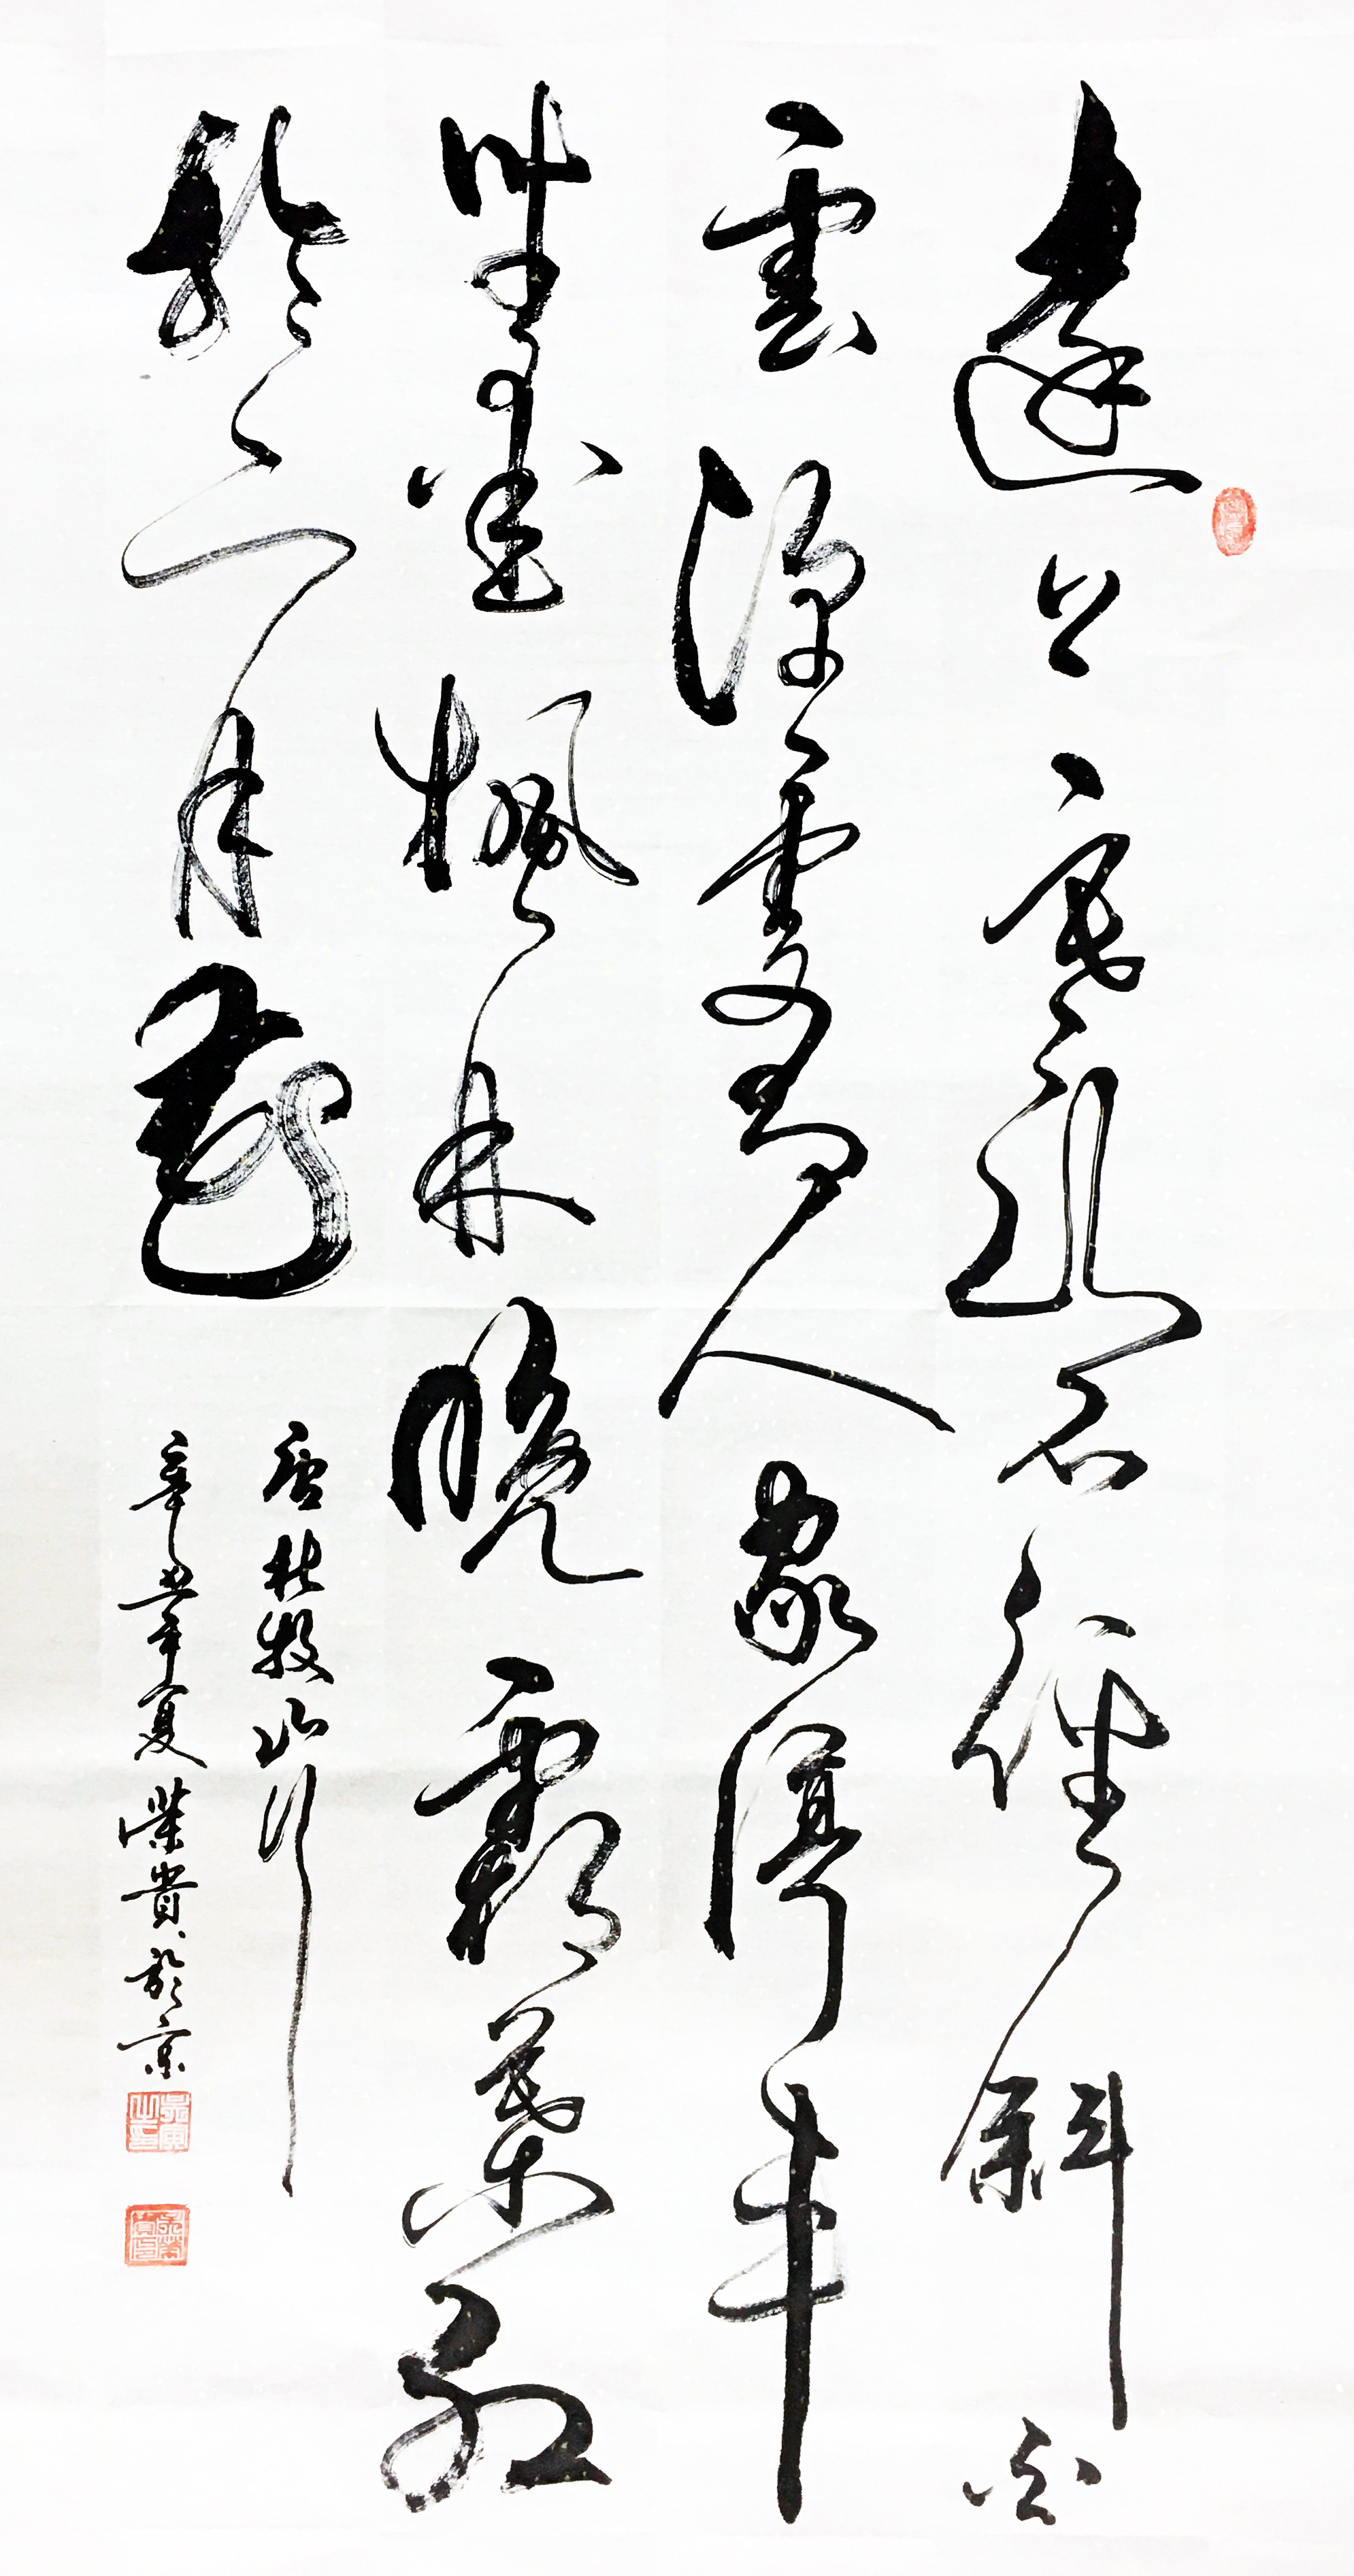 遠上寒山石徑斜白
雲深處有人家停車
坐愛楓林晚霜葉紅
於二月花
唐杜牧山行
辛丑年夏榮貴於京